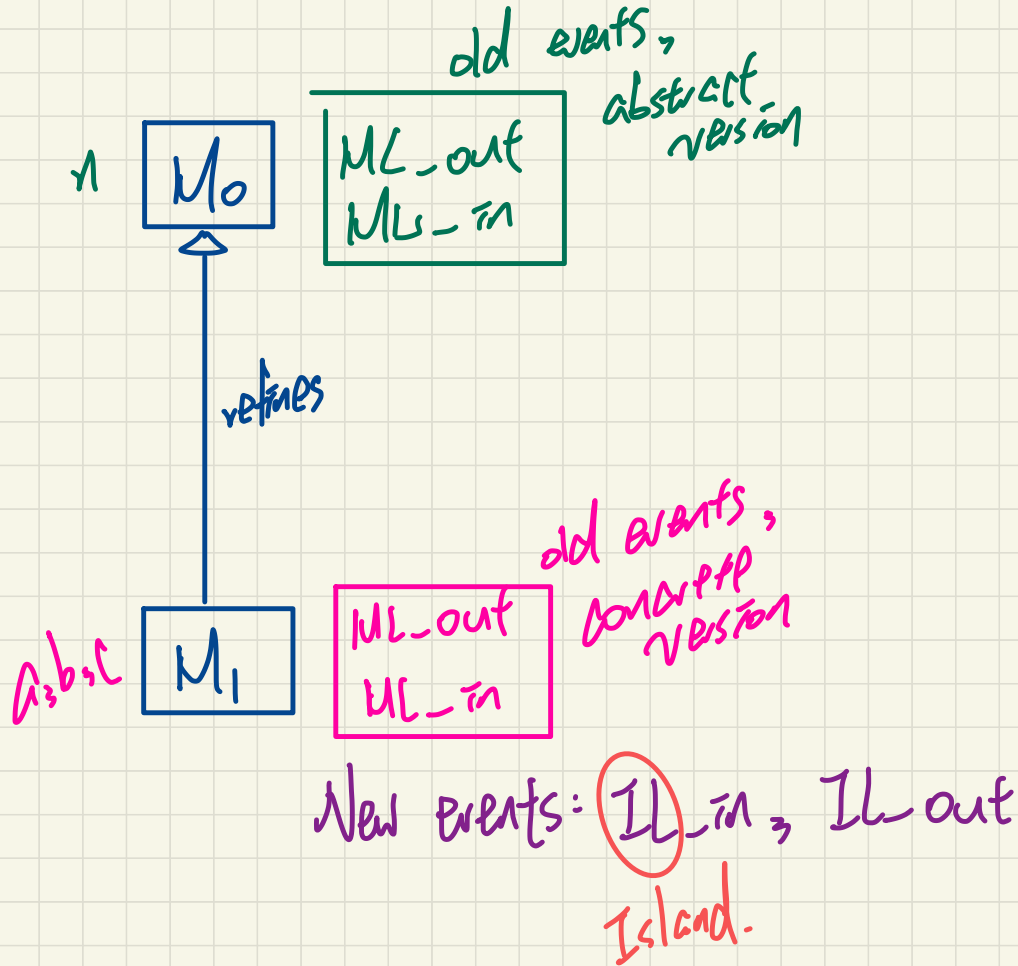 old events,
abstract
version
n
M0
ML_out
ML_in
refines
old events,
concrete
version
a,b,c
M1
ML_out
ML_in
New events: IL_in, IL_out
Island.